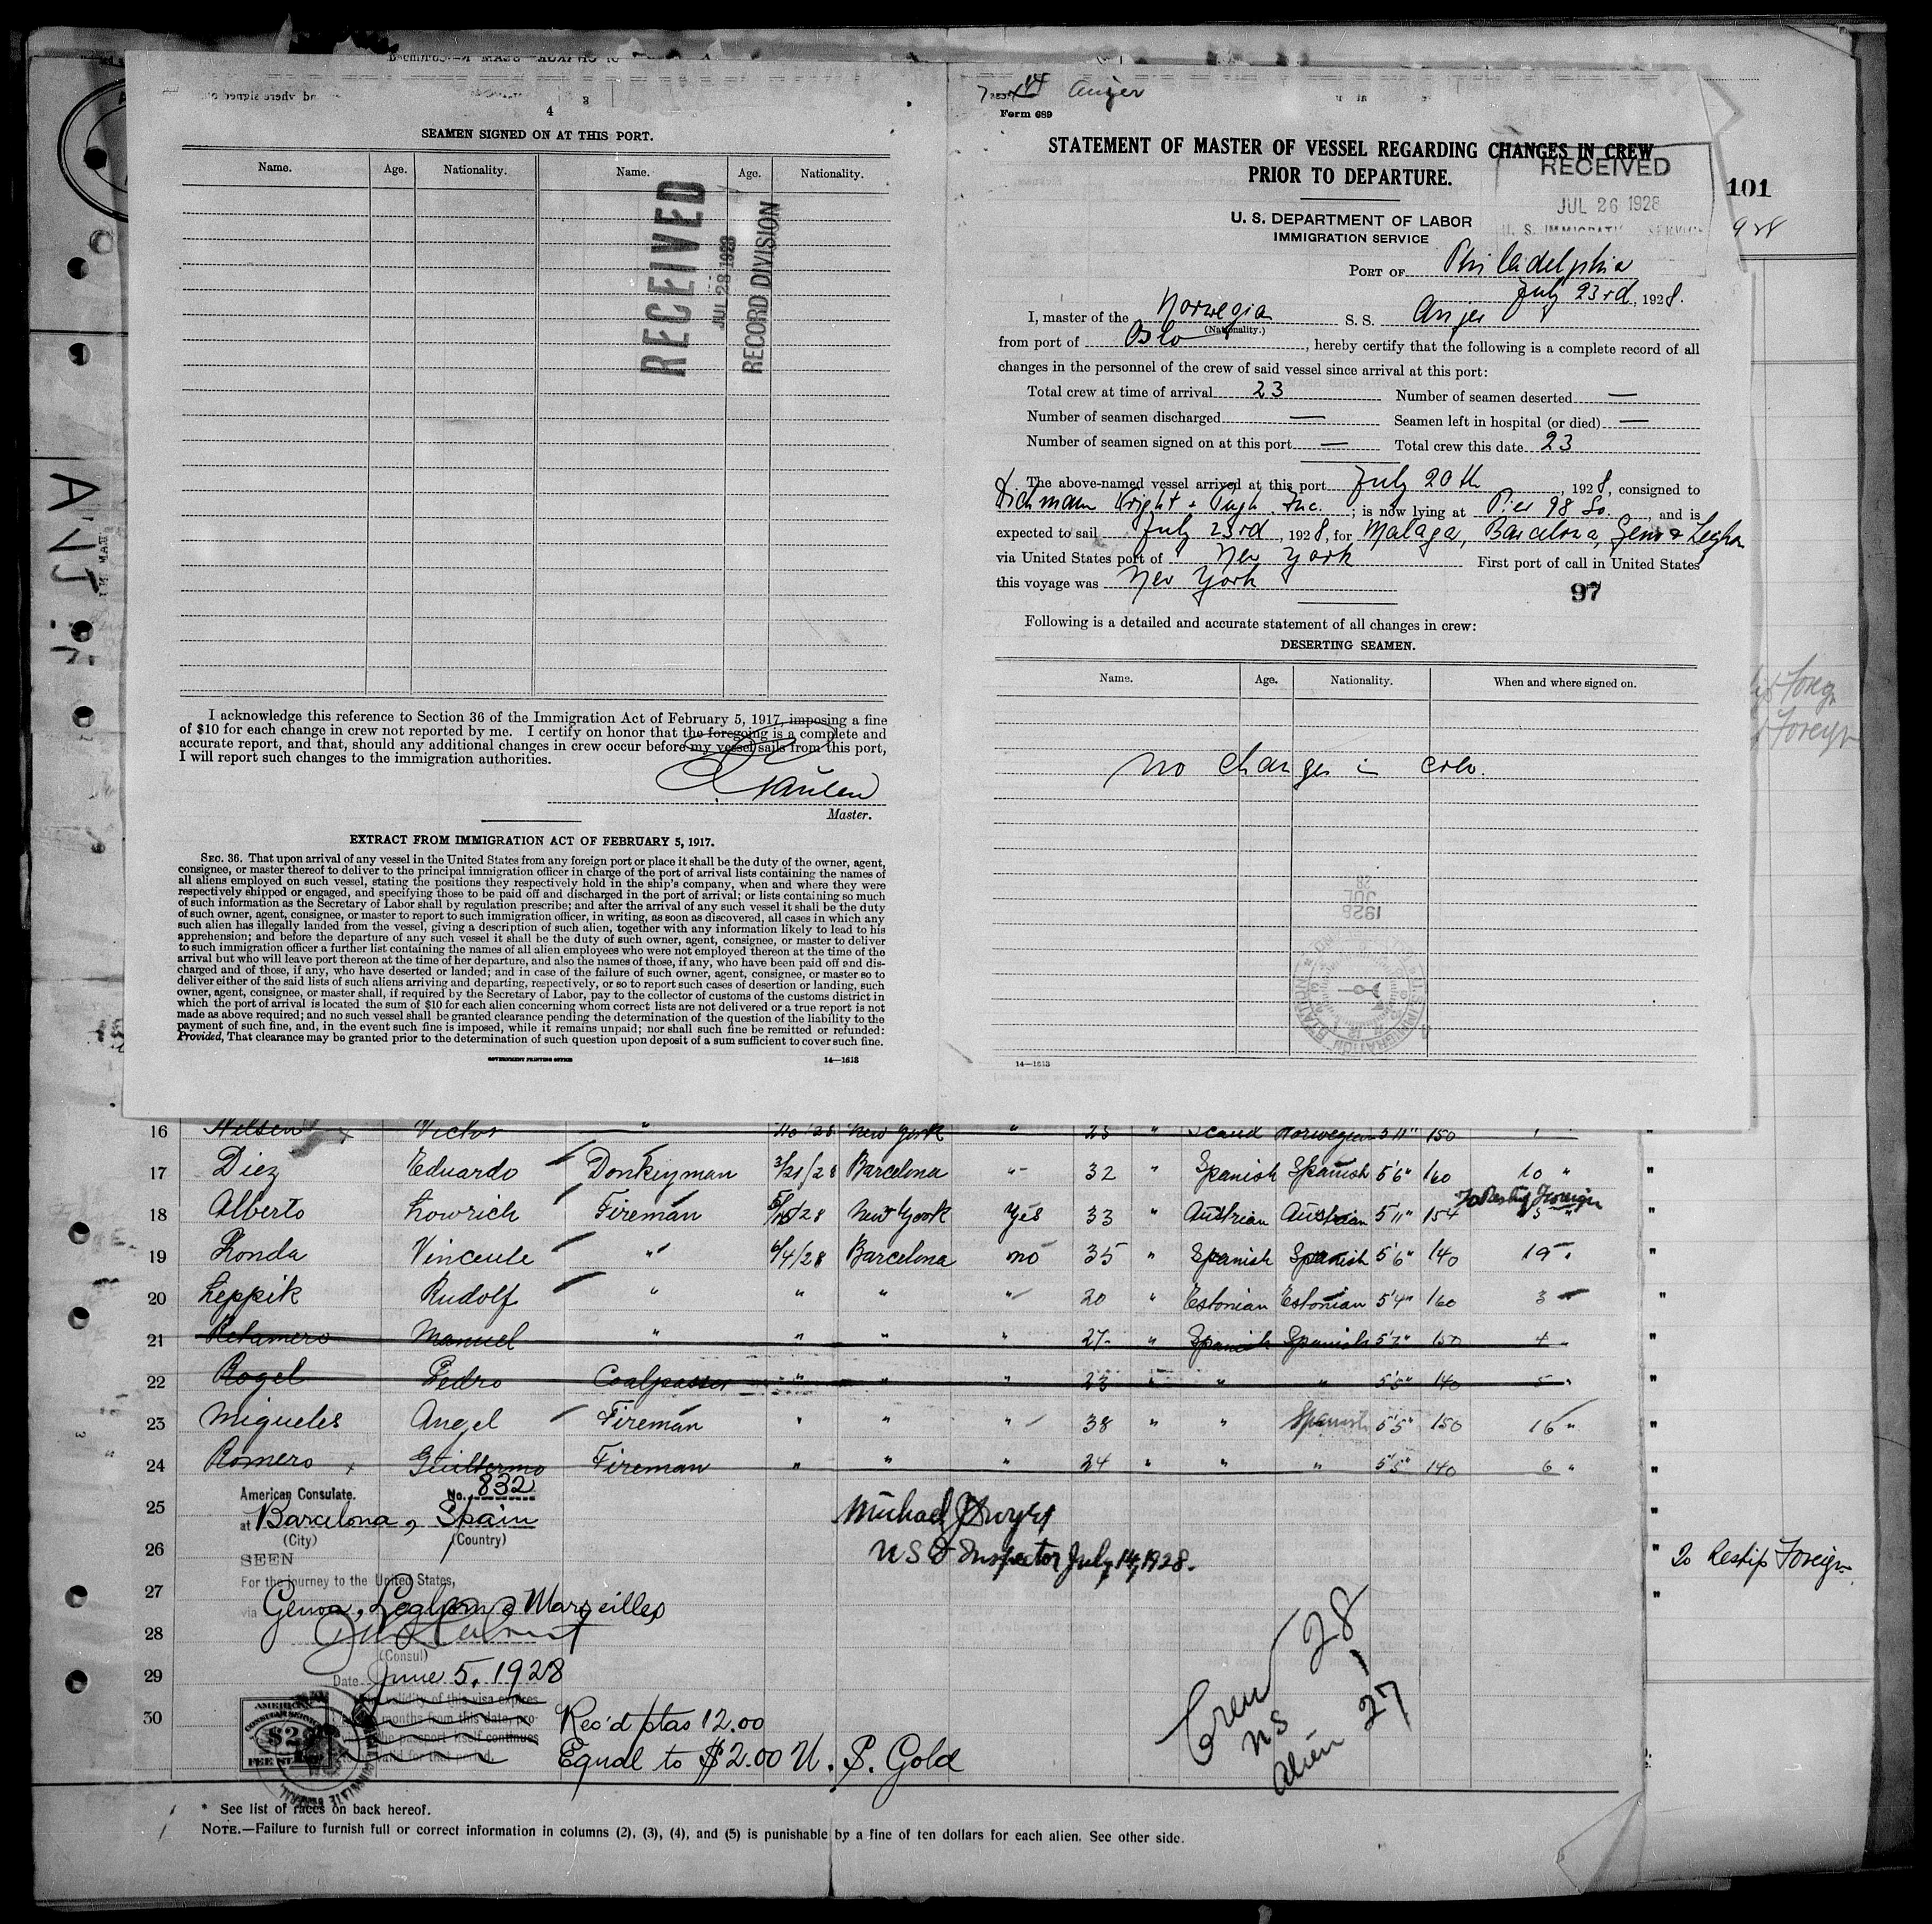 4
SEAMEN SIGNED ON AT THIS PORT.
Name. Age. Nationality. Name. Age. Nationality.
RECEIVED
JUL 28 1928
RECORD DIVISION
I acknowledge this reference to Section 36 of the Immigration Act of February 5, 1917, imposing a fine
of $10 for each change in crew not reported by me. I certify on honor that the foregoing is a complete and
accurate report, and that, should any additional changes in crew occur before my vessel sails from this port,
I will report such changes to the immigration authorities.
Master.
EXTRACT FROM IMMIGRATION ACT OF FEBRUARY 5, 1917.
SEC. 36. That upon arrival of any vessel in the United States from any foreign port or place it shall be the duty of the owner, agent,
consignee, or master thereof to deliver to the principal immigration officer in charge of the port of arrival lists containing the names of
all aliens employed on such vessel, stating the positions they respectively hold in the ship's company, when and where they were
respectively shipped or engaged, and specifying those to be paid off and discharged in the port of arrival; or lists containing so much
of such information as the Secretary of Labor shall by regulation prescribe; and after the arrival of any such vessel it shall be the duty
of such owner, agent, consignee, or master to report to such immigration officer, in writing, as soon as discovered, all cases in which any
such alien has illegally landed from the vessel, giving a description of such alien, together with any information likely to lead to his
apprehension; and before the departure of any such vessel it shall be the duty of such owner, agent, consignee, or master to deliver
to such immigration officer a further list containing the names of all alien employees who were not employed thereon at the time of the
arrival but who will leave port thereon at the time of her departure, and also the names of those, if any, who have been paid off and dis-
charged and of those, if any, who have deserted or landed; and in case of the failure of such owner, agent, consignee, or master so to
deliver either of the said lists of such aliens arriving and departing, respectively, or so to report such cases of desertion or landing, such
owner, agent, consignee, or master shall, if required by the Secretary of Labor, pay to the collector of customs of the customs district in
which the port of arrival is located the sum of $10 for each alien concerning whom correct lists are not delivered or a true report is not
made as above required; and no such vessel shall be granted clearance pending the determination of the question of the liability to the
payment of such fine, and, in the event such fine is imposed, while it remains unpaid; nor shall such fine be remitted or refunded:
Provided, That clearance may be granted prior to the determination of such question upon deposit of a sum sufficient to cover such fine.
GOVERNMENT PRINTING OFFICE 14—1613
Anger
Form 689
STATEMENT OF MASTER OF VESSEL REGARDING CHANGES IN CREW
PRIOR TO DEPARTURE.
RECEIVED
JUL 26 1928
U. S. IMMIGRATION SERVICE
101
U. S. DEPARTMENT OF LABOR
IMMIGRATION SERVICE
PORT OF Philadelphia
July 23rd, 1928.
I, master of the Norwegia S. S. Anger
(Nationality.)
from port of Oslo, hereby certify that the following is a complete record of all
changes in the personnel of the crew of said vessel since arrival at this port:
Total crew at time of arrival 23 Number of seamen deserted —
Number of seamen discharged — Seamen left in hospital (or died) —
Number of seamen signed on at this port — Total crew this date 23
The above-named vessel arrived at this port July 20th, 1928, consigned to
Dichmann Wright & Pugh Inc.; is now lying at Pier 98 So, and is
expected to sail July 23rd, 1928, for Malaga, Barcelona, Genoa Leghorn
via United States port of New York First port of call in United States
this voyage was New York
97
Following is a detailed and accurate statement of all changes in crew:
DESERTING SEAMEN.
Name. Age. Nationality. When and where signed on.
no changes in crew.
JUL 28 1928
U.S. IMMIGRATION STATION
14—1613
16 Nilsen Victor " New York " 25 " Scand Norwegian 5'11" 150
17 Diez Eduardo Donkeyman 3/21/28 Barcelona " 32 " Spanish Spanish 5'6" 160 10 " "
To Reship Foreign
18 Alberto Lowrich Fireman 5/15/28 New York Yes 33 " Austrian Austrian 5'11" 154 5 " "
19 Londa Vinceute " 6/4/28 Barcelona no 35 " Spanish Spanish 5'6" 140 19 " "
20 Leppik Rudolf " " " " 20 " Estonian Estonian 5'4" 160 3 " "
21 Retamero Manuel " " " " 27 " Spanish Spanish 5'7" 150 4 " "
22 Rogel Pedro Coalpasser " " " 23 " " " 5'5" 140 5 " "
23 Migueles Angel Fireman " " " 38 " " Spanish 5'5" 150 16 " "
24 Romero Guillermo Fireman " " " 24 " " " 5'5" 140 6 " "
American Consulate. No. 832
25 at Barcelona, Spain
(City) (Country)
Michael J Dwyer
26 SEEN
U S I Inspector July 14, 1928.
To Reship Foreign
For the journey to the United States,
27 via Genoa, Leghorn & Marseilles
28
(Consul)
29 Date June 5, 1928
validity of this visa expires
months from this date, pro-
the passport itself continues
valid for that period.
30 Rec'd ptas 12.00
Equal to $2.00 U. S. Gold
AMERICAN
CONSULAR SERVICE
$2
FEE STAMP
Crew 28
US 1
Alien 27
* See list of races on back hereof.
NOTE.—Failure to furnish full or correct information in columns (2), (3), (4), and (5) is punishable by a fine of ten dollars for each alien. See other side.